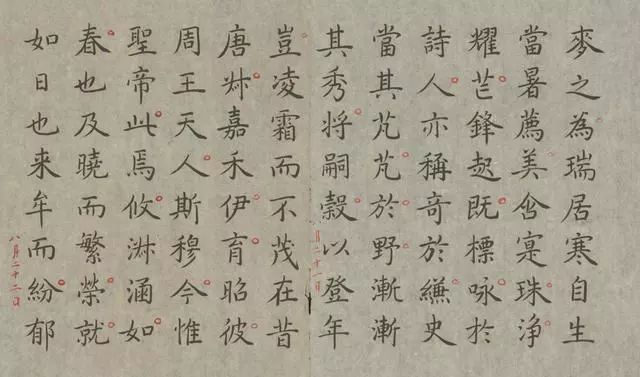 麥之為瑞居寒自生
當暑薦美含寔珠淨
耀芒鋒起既標咏於
詩人亦稱奇於縑史
當其芃芃於野漸漸
月二十一日
其秀将嗣穀以登年
豈凌霜而不茂在昔
唐叔嘉禾伊育昭彼
周王天人斯穆今惟
聖帝此焉攸淑涵如
春也及曉而繁榮就
如日也来牟而紛郁
八月二十二日